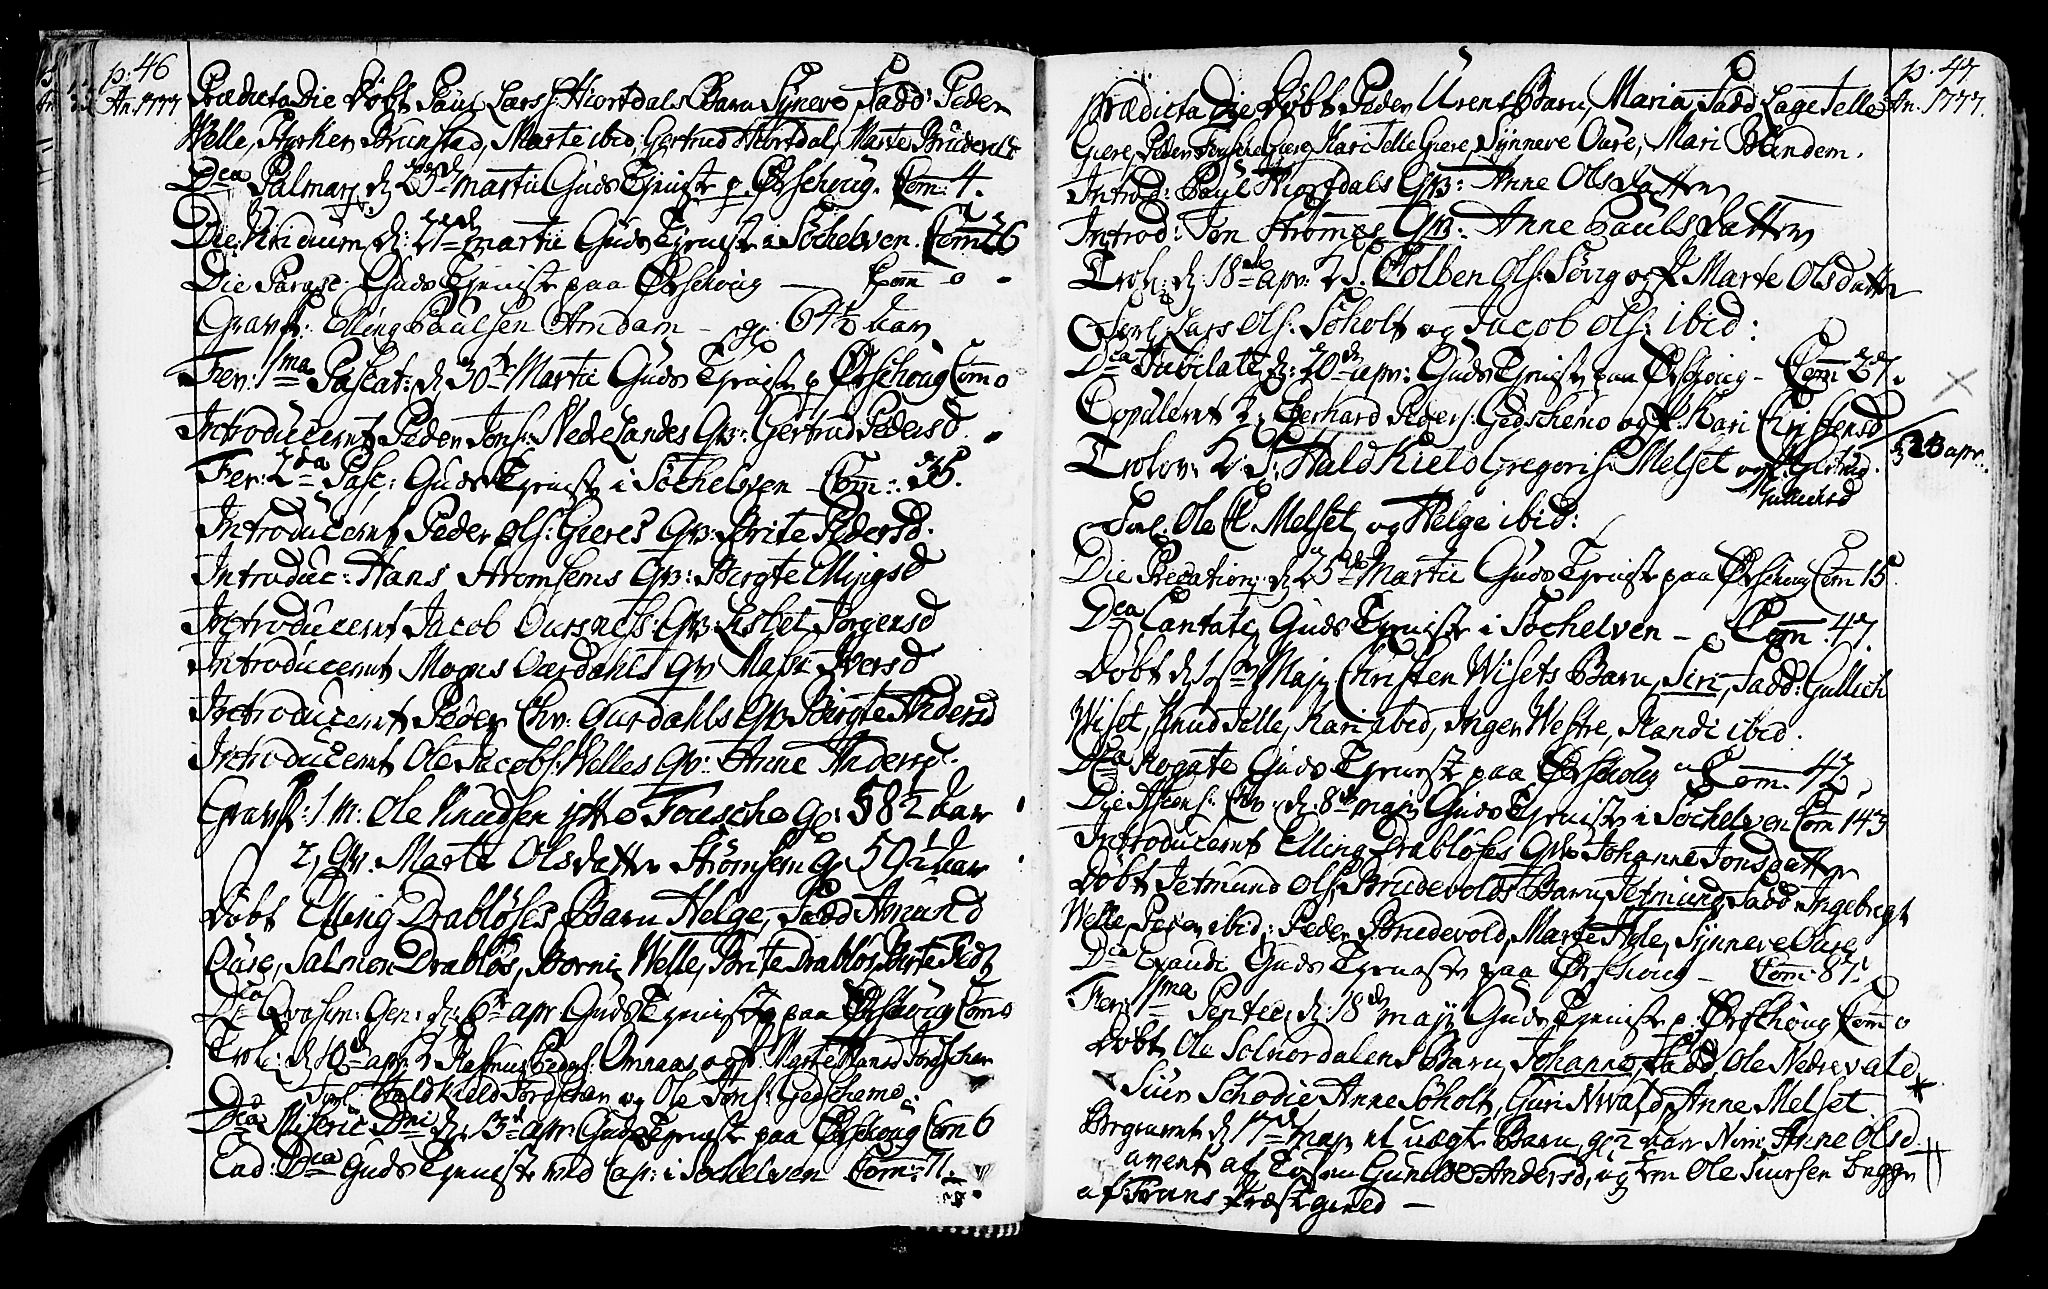 p. 46
An. 1777
Prædicta Die Døbt Paul Lars: Hiortdals Barn Synneve, Fadd: Peder
Welle, Styrker Brunstad, Marte ibid, Gertrud Hiortdal, Marte Brudevole
Dca Palmarj d 23de martii Guds Tjeniste p Ørschoug. Com: 4.
Die Viridium d: 27de martii Guds Tjeniste i Søchelven. Com: 26
Die Parasc: Guds Tjeniste paa Ørschoug — Com 0 -
Gravf: Elling Paulsen Amdam - gl: 64½ aar
Fer: 1ma Pascat: d 30te Martii Guds Tjeniste p Ørschoug Com 0
Introducernt Peder Jons: Nedrelandes Qv: Gertrud Pedersd.
Fer: 2da Pasc: Guds Tjeniste i Søchelven - Com: 36.
Introducernt Peder Ols: Gieres Qv: Brite Pedersd.
Introduc: Hans Strømsems Qv: Birgte Ellingsd
Introducernt Jacob Oursness: Qv: Lisbet Jørgensd
Introducernt Mogns Overdahls Qv Masii Iversd
Introducernt Peder Chr: Aursdahls Qv: Birgte Andersd
Introducernt Ole Jacobs: Welles Qv: Anne Andersd.
Gravf: 1 M: Ole Knudsen ytte Fousche gl: 58½ aar
2, Qv. Marte Olsdatter Strømsem gl 59½ aar
Døbt Elling Drabløses Barn Helge, Fadd Amund
Oure, Salmon Drabløs, Borni Welle, Brite Drabløs, Birte
Dca Qvasim: Gen: d: 6te apr Guds Tjeniste paa Ørschoug Com 0
Trol: d 10de apr: Rasmus Peders: Omnaas og P. Marte Hansd
Forl: Haldkield og Ole Jons: Gedschemo:
Dca Miseric Dni d: 13de apr: Guds Tjeniste paa Ørschoug Com 6
Ead: Dca Guds Tjeniste ved Cap: i Søchelven Com: 71.
p. 47
An. 1777.
Prædicta Die Døbt Peder Urens Barn, Maria, Fadd Lage Jelle
Giere, Peder Giere, Kari Jelle Giere, Synneve Oure, Mari Blindem.
Introd: Paul Hiortdals Qv: Anne Olsdatter
Introd: Jon Strømmes Qv: Anne Paulsdatter
Trol: d: 18de apr: S. Colben Ols: Søvig og P Marte Olsdatter
Forl: Lars Ols: Søholt og Jacob Ols: ibid:
Dca Jubilate d: 20de apr: Guds Tjeniste paa Ørschoug - Com 27.
Copulernt Eberhard Peders: Gedschemo og P: Kari Christensd
Trolov: S: Haldkield Gregoris: Melset og P: Gertrud
Gullichsd
23 apr.
Forl: Ole Melset og Helge ibid:
Die Precation: d 25de Martii Guds Tjeniste paa Ørschoug Com 15.
Dca Cantate Guds Tjeniste i Søchelven - Com: 47.
Døbt d Maji Christen Wisets Barn, Siri, Fadd: Gullich
Wiset, Knud Jelle, Kari ibid, Inger Westre, Randi ibid.
Dca Rogate Guds Tjeniste paa Ørschoug - Com. 42
Die Ascens: Chr: d: 8de maji Guds Tjeniste i Søchelven Com 143
Introducernt Elling Drabløses Qv: Johanne Jonsdatter
Døbt Jetmund Ols: Brudevolds Barn, Jetmund, Fadd Ingebregt
Welle, Peder ibid, Peder Brudevold, Marte Hole, Synneve Oure
Dca Exaudi Guds Tjeniste paa Ørschoug - Com: 87.
Fer: 1ma Pentec: d: 18de maji Guds Tjeniste p. Ørschoug Com 0
Døbt Ole Solnordalens Barn, Johanne, Fadd, Ole Nedrevale
Siur Schodie, Anne Søholt, Guri Nwald, Anne Melset
Begravet d 17de maji et uægte Barn, gl ½ aar Navn: Anne Olsd.
avent af Gunild Andersd, og Ole Siursen begge
af Præstegield —